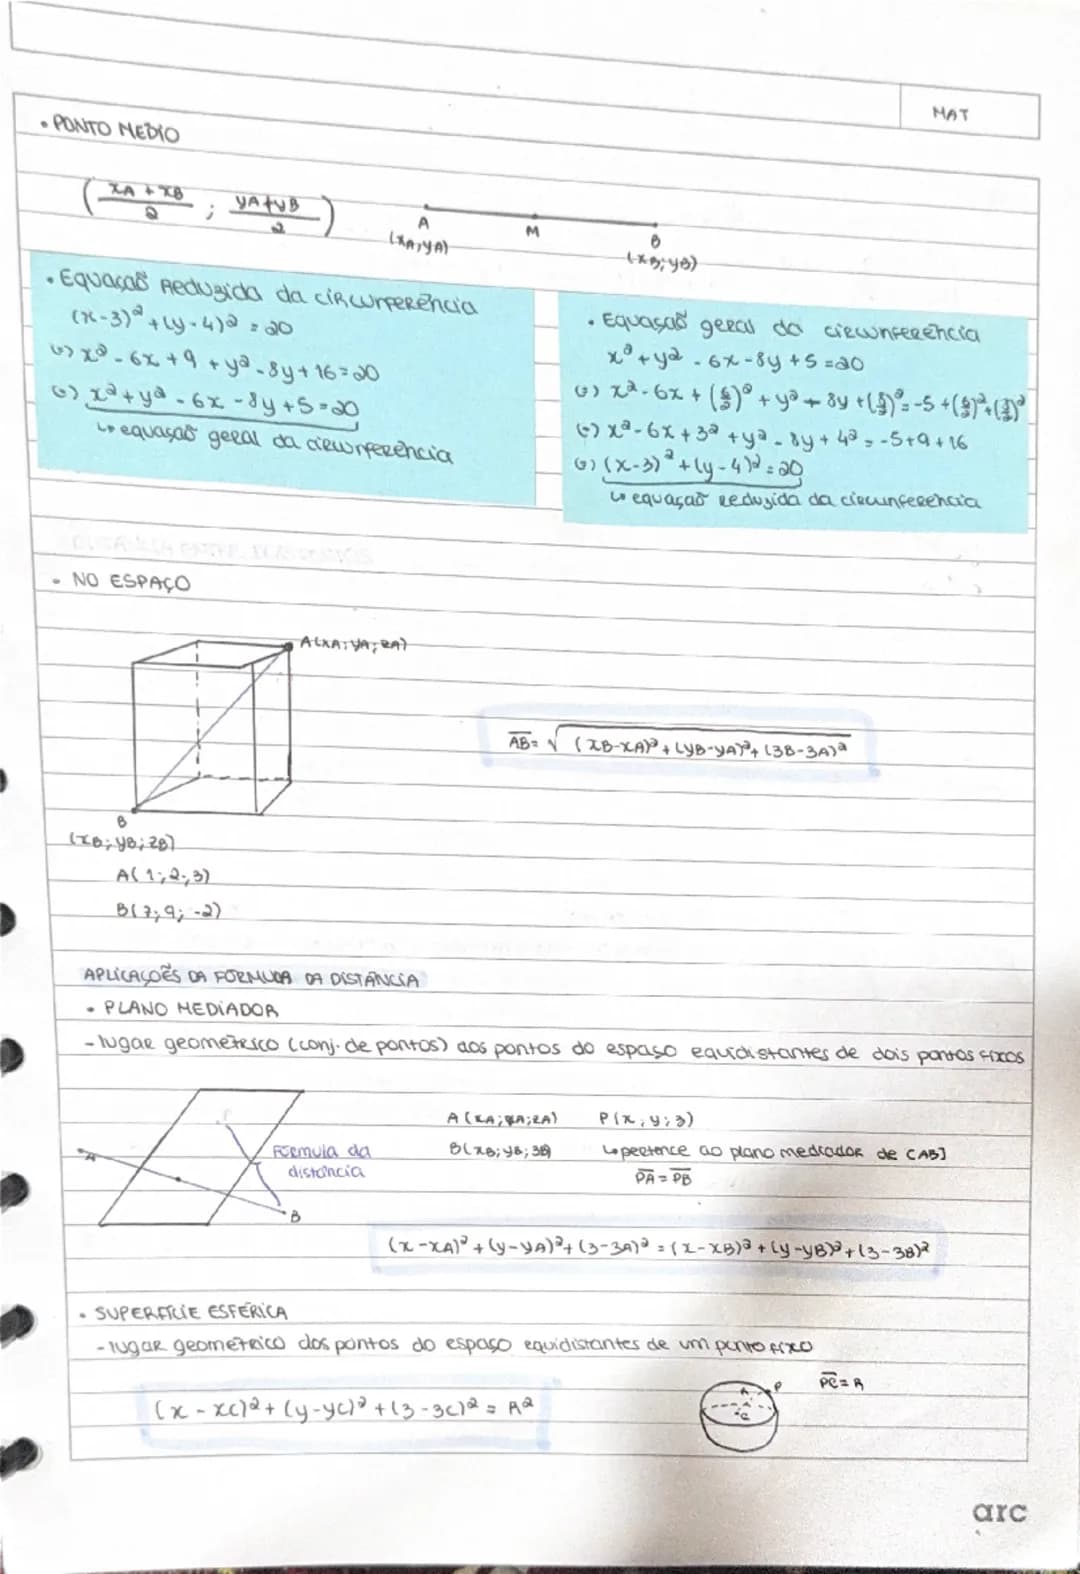 MAT
• PONTO MEDIO
(xA + xB / 2 ; yA + yB / 2)
A
M
B
(xA; yA)
(xB; yB)
• Equação Reduzida da circunferência
(x-3)² + (y-4)² = 20
(=) x² - 6x + 9 + y² - 8y + 16 = 20
(=) x² + y² - 6x - 8y + 5 = 20
↳ equação geral da circunferência
• Equação geral da circunferência
x² + y² - 6x - 8y + 5 = 20
(=) x² - 6x + (6/2)² + y² - 8y + (8/2)² = -5 + (6/2)² + (8/2)²
(=) x² - 6x + 3² + y² - 8y + 4² = -5 + 9 + 16
(=) (x-3)² + (y-4)² = 20
↳ equação reduzida da circunferência
• NO ESPAÇO
A(xA; yA; zA)
AB = √(xB-xA)² + (yB-yA)² + (zB-zA)²
B
(xB; yB; zB)
A(1; 2; 3)
B(7; 9; -2)
APLICAÇÕES DA FÓRMULA DA DISTÂNCIA
• PLANO MEDIADOR
- lugar geométrico (conj. de pontos) dos pontos do espaço equidistantes de dois pontos fixos
A (xA; yA; zA) P(x; y; z)
B(xB; yB; zB) ↳ pertence ao plano mediador de [AB]
PA = PB
A
Fórmula da
distância
B
(x-xA)² + (y-yA)² + (z-zA)² = (x-xB)² + (y-yB)² + (z-zB)²
• SUPERFÍCIE ESFÉRICA
- lugar geométrico dos pontos do espaço equidistantes de um ponto fixo
PC = R
R
P
C
(x - xC)² + (y-yC)² + (z-zC)² = R²
arc